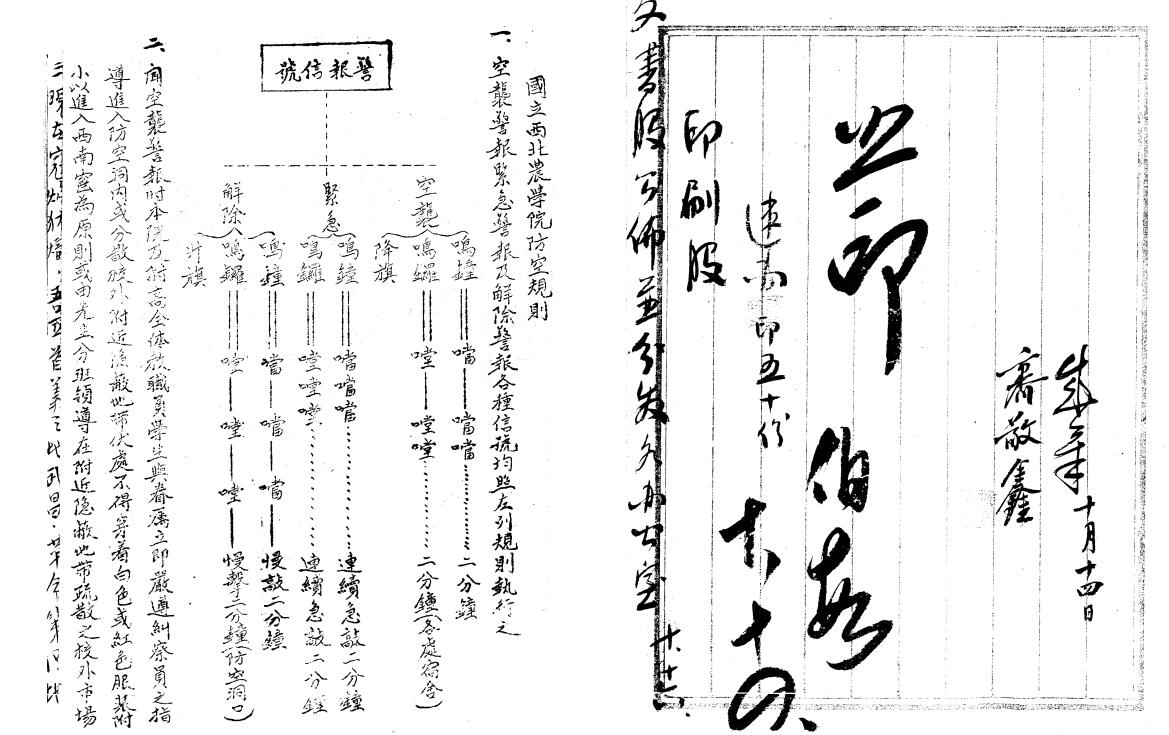 國立西北農學院防空規則
一、空襲警報緊急警報及解除警報各種信號均照左列規則執行之
警報信號
空襲
鳴鐘 噹 噹噹 二分鐘
鳴鑼 嘡 嘡嘡 二分鐘(各處宿舍)
降旗
緊急
鳴鐘 噹噹噹 連續急敲二分鐘
鳴鑼 嘡嘡嘡 連續急敲二分鐘
解除
鳴鐘 噹 噹 噹 慢敲二分鐘
鳴鑼 嘡 嘡 嘡 慢擊二分鐘(防空洞口)
升旗
二、聞空襲警報時本院及附高全体教職員學生與眷屬立即嚴遵糾察員之指
導進入防空洞內或分散校外附近隱蔽地帶伏處不得穿着白色或紅色服裝附
小以進入西南窰為原則或由先生分班領導在附近隐蔽地帶疏散之校外市場
十月十四日
齊敬鑫
照印
印五十份
印刷股
文書股公佈並分發